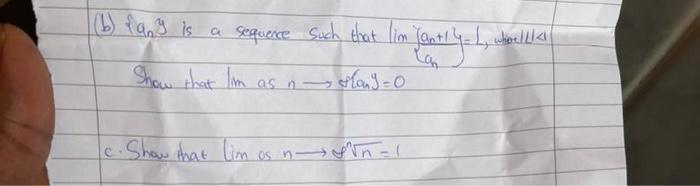 (b) {an} is a sequence such that lim {an+1/an} = l, where |l|<1
Show that lim as n → ∞ {an} = 0
c. Show that lim as n → ∞ ⁿ√n = 1